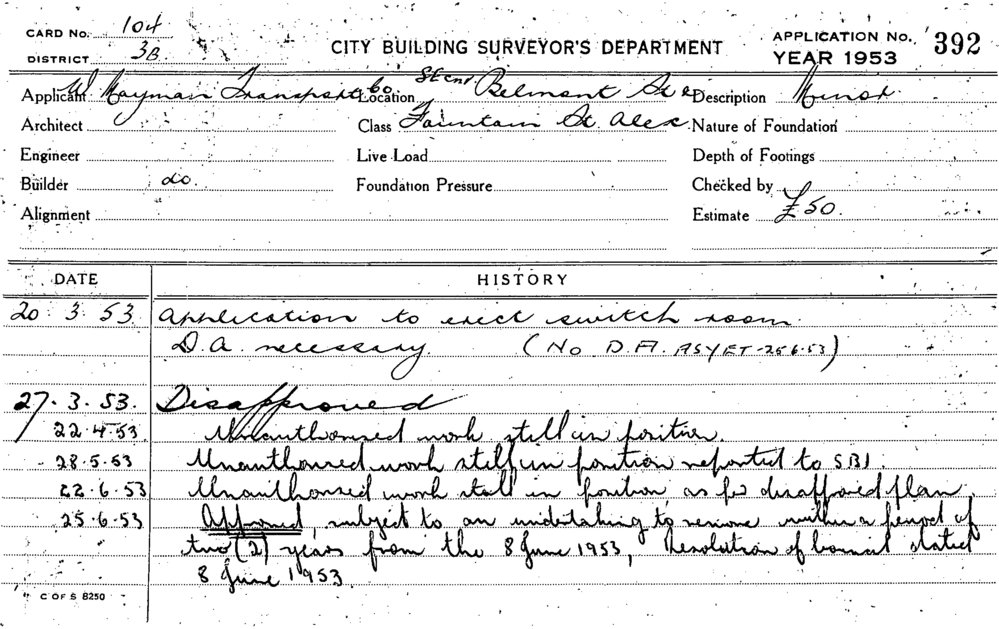 CARD No. 104
DISTRICT 3B.
CITY BUILDING SURVEYOR'S DEPARTMENT
APPLICATION No. 392
YEAR 1953
Applicant W. Hayman Transport Co Location Belmont St & Description Minor.
Architect Class Fountain St. Alex. Nature of Foundation
Engineer Live Load Depth of Footings
Builder do. Foundation Pressure Checked by
Alignment Estimate £50.
DATE HISTORY
20. 3. 53 Application to erect switch room.
D.A. necessary. (NO D.A. AS YET-25.6.53)
27. 3. 53. Disapproved
22.4.53. Unauthorised work still in position.
28.5.53 Unauthorised work still in position reported to SBI.
22.6.53 Unauthorised work still in position as per disapproved plan.
25.6.53 Approved, subject to an undertaking to remove within a period of
two (2) years from the 8 June 1953, Resolution of Council dated
8 June 1953.
C OF S 8250